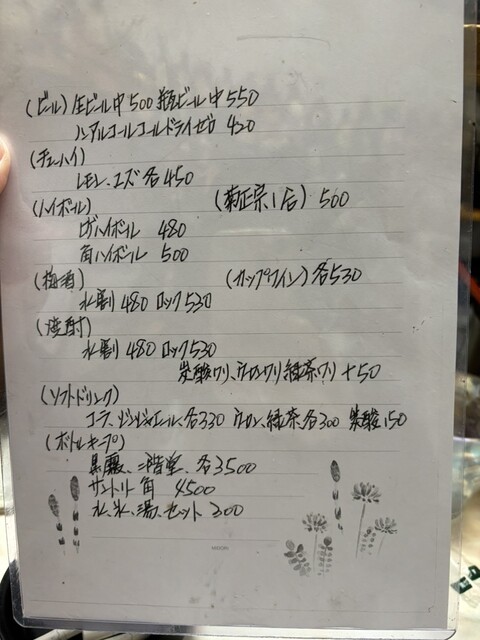 (ビール) 生ビール中 500 瓶ビール 中 550
ノンアルコールコールドライゼロ 420
(チューハイ)
レモン、ユズ 各 450
(ハイボール) (菊正宗1合) 500
ハイボール 480
角ハイボール 500
(梅酒) (カップワイン) 各530
水割 480 ロック 530
(焼酎)
水割 480 ロック 530
炭酸ワリ、ウーロンワリ 緑茶ワリ +50
(ソフトドリンク)
コーラ、ジンジャエール、各330 ウーロン、緑茶、各300 炭酸150
(ボトルキープ)
黒霧、二階堂、各3500
サントリー 角 4500
水、氷、湯、セット 300
MIDORI